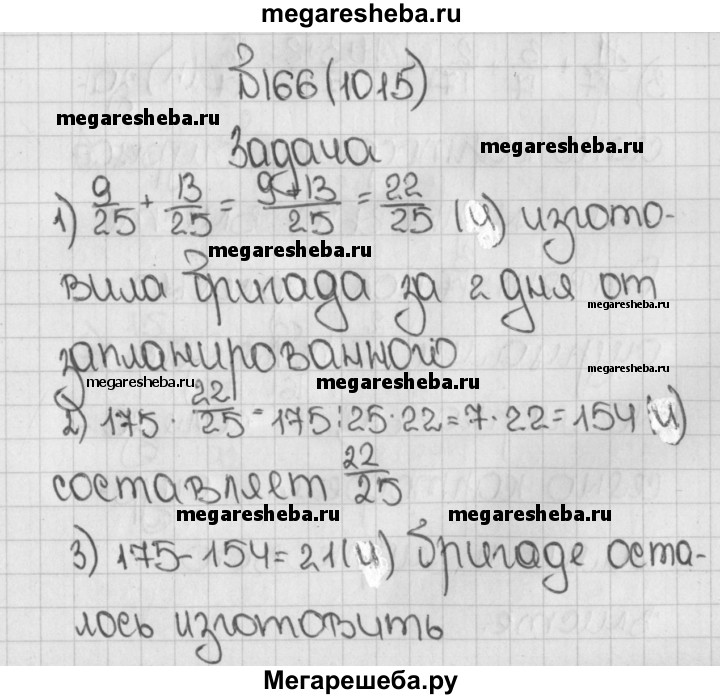 megaresheba.ru
№166(1015)
megaresheba.ru
Задача
megaresheba.ru
1) 9/25 + 13/25 = 9+13/25 = 22/25 (ч) изгото-
megaresheba.ru
вила бригада за 2 дня от
megaresheba.ru
запланированного
megaresheba.ru
megaresheba.ru
megaresheba.ru
megaresheba.ru
2) 175 · 22/25 = 175:25·22=7·22=154(ч)
составляет 22/25
megaresheba.ru
megaresheba.ru
3) 175-154=21(ч) бригаде оста-
лось изготовить
Мегарешеба.ру